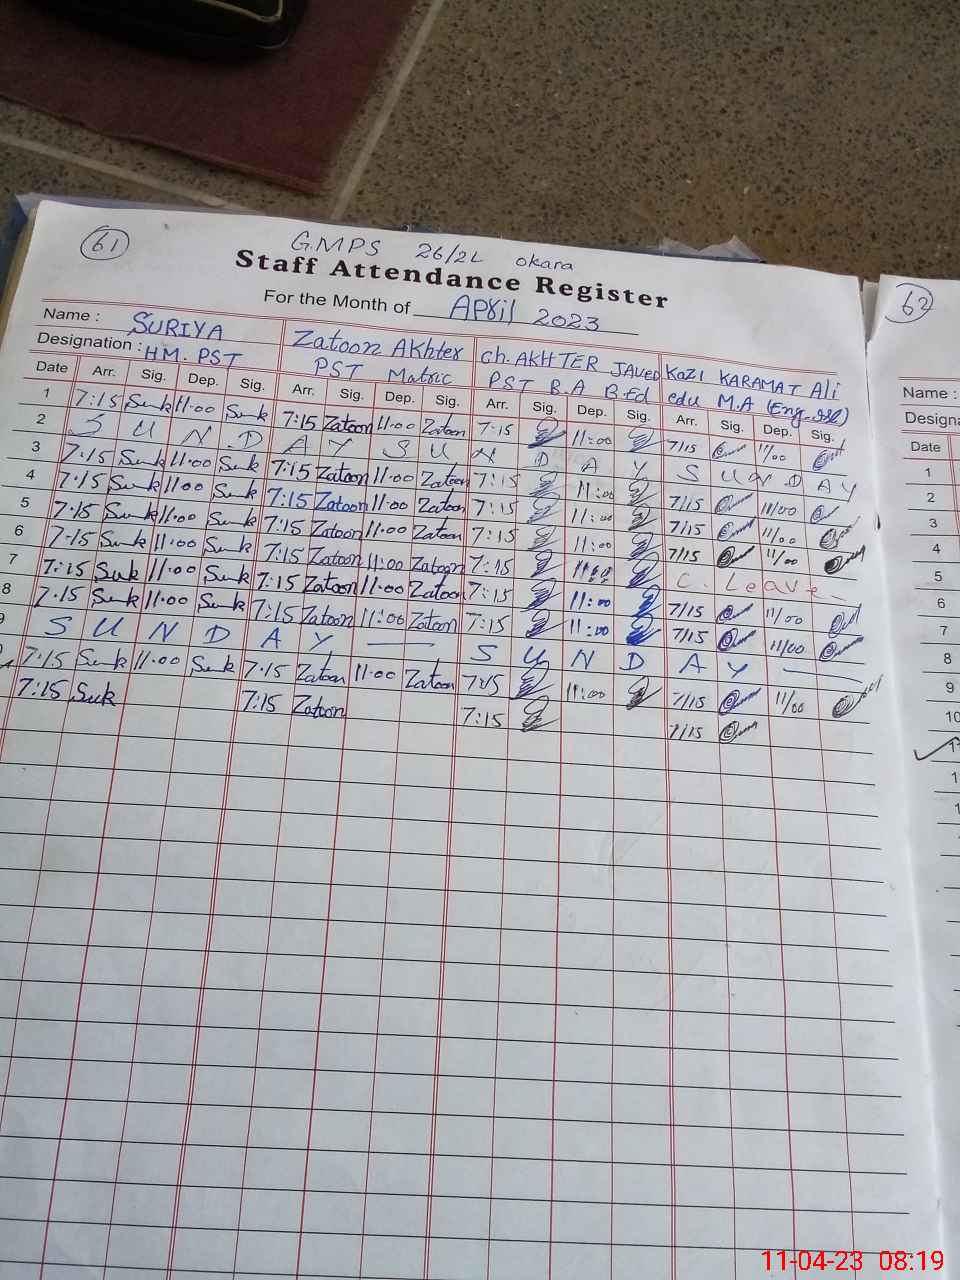 61
G.MPS 26/2L okara
Staff Attendance Register
For the Month of April 2023
62
Name : SURIYA Zatoon Akhter Ch. AKHTER JAVED KAZI KARAMAT Ali
Designation : HM. PST PST Matric PST B.A B.Ed edu M.A
Date Arr. Sig. Dep. Sig. Arr. Sig. Dep. Sig. Arr. Sig. Dep. Sig. Arr. Sig. Dep. Sig.
1 7:15 11:00 7:15 Zatoon 11:00 Zatoon 7:15 11:00 7/15 11/00
2 S U N D A Y S U N D A Y S U N D A Y
3 7:15 11:00 7:15 Zatoon 11:00 Zatoon 7:15 11:00 7/15 11/00
4 7:15 11:00 7:15 Zatoon 11:00 Zatoon 7:15 11:00 7/15 11/00
5 7:15 11:00 7:15 Zatoon 11:00 Zatoon 7:15 11:00 7/15 11/00
6 7:15 11:00 7:15 Zatoon 11:00 Zatoon 7:15 C. Leave
7 7:15 11:00 7:15 Zatoon 11:00 Zatoon 7:15 11:00 7/15 11/00
8 7:15 11:00 7:15 Zatoon 11:00 Zatoon 7:15 11:00 7/15 11/00
S U N D A Y S U N D A Y
7:15 11:00 7:15 Zatoon 11:00 Zatoon 7:15 11:00 7/15 11/00
7:15 7:15 Zatoon 7:15 7/15
Name :
Date
1
2
3
4
5
6
7
8
9
10
11-04-23 08:19